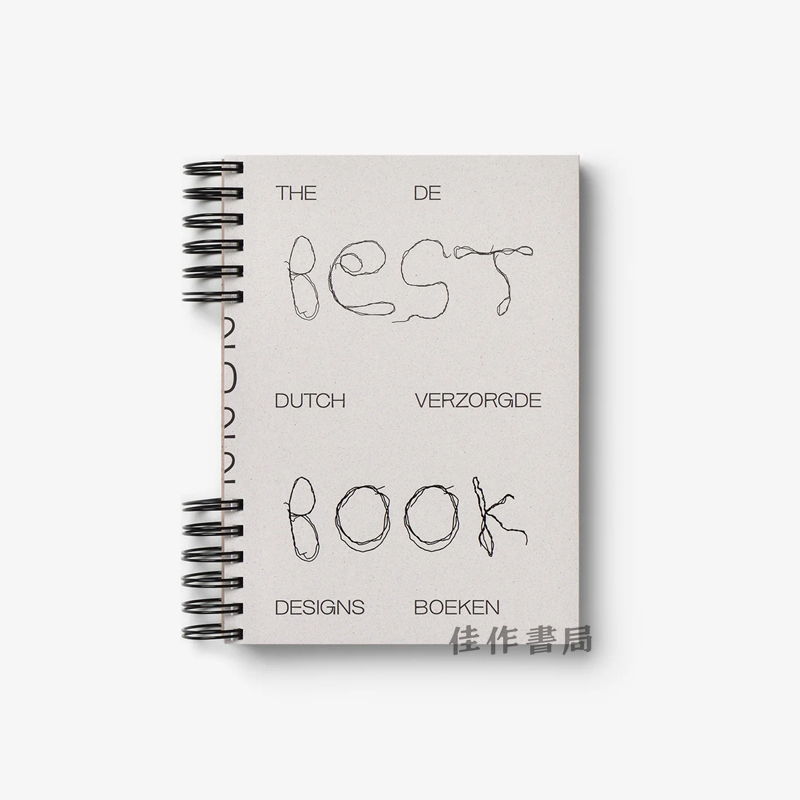 THE DE
BEST
DUTCH VERZORGDE
BOOK
DESIGNS BOEKEN
2022
佳作書局